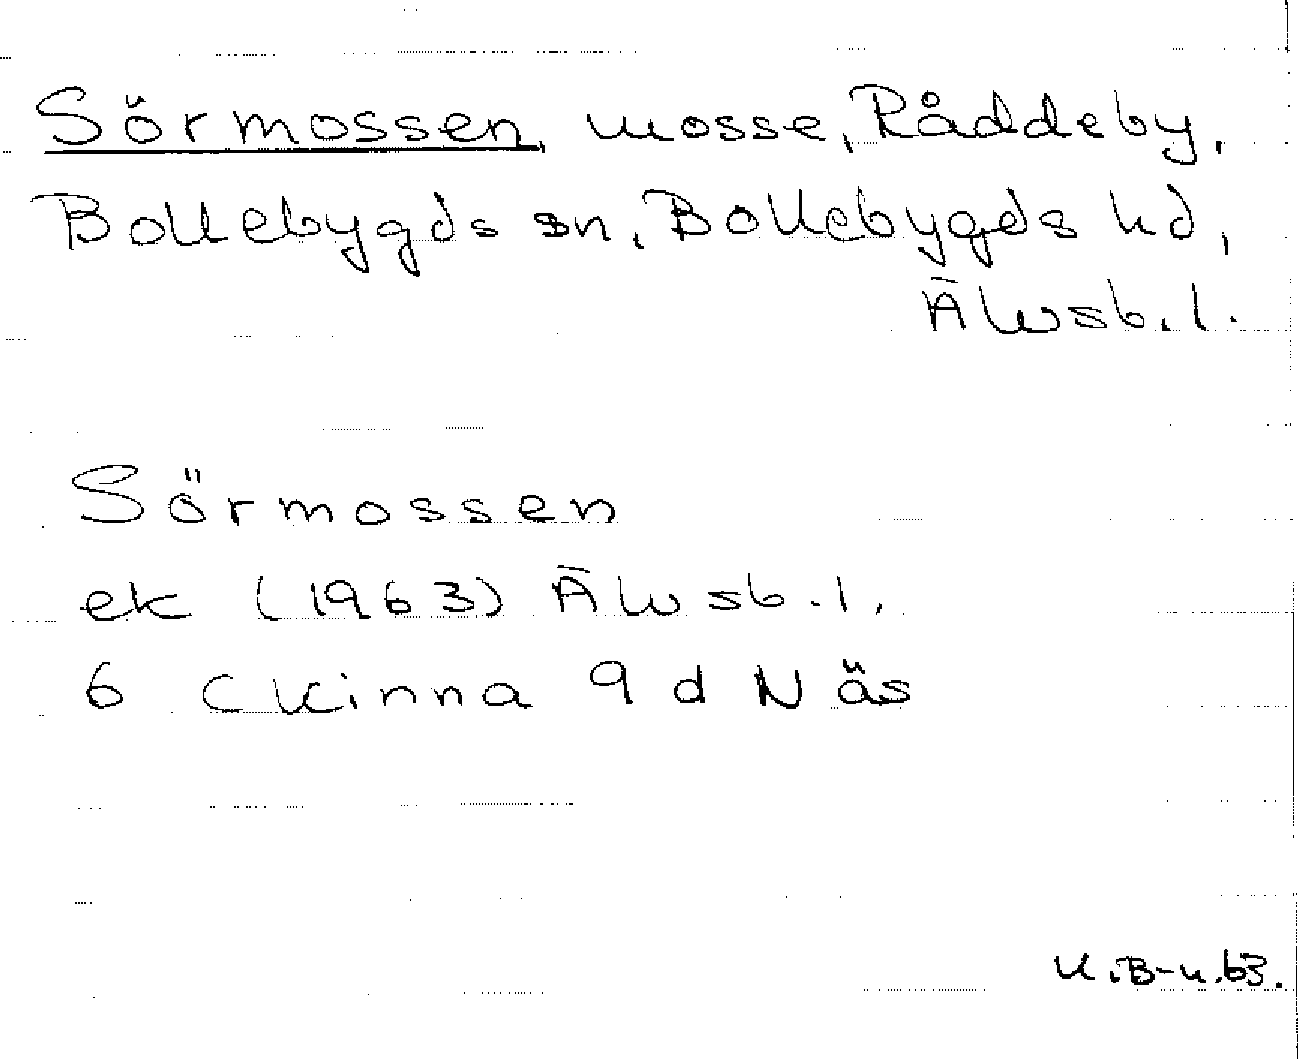 Sörmossen, mosse, Råddeby,
Bollebygds sn, Bollebygds hd,
Älvsb. l.
Sörmossen
ek (1963) Älvsb. l.
6 C Kinna 9 d Näs
K.B-n.63.